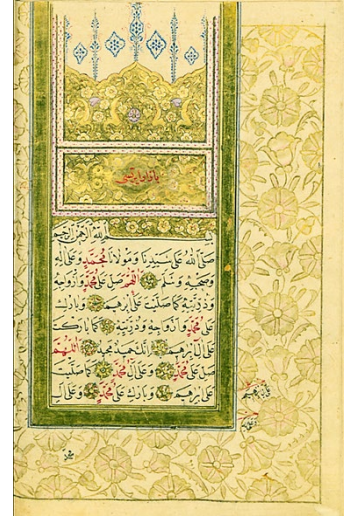 بسم الله الرحمن الرحيم
صلى الله على سيدنا ومولانا محمد وعلى آله
وصحبه وسلم اللهم صل على محمد وأزواجه
وذريته كما صليت على إبرهيم وبارك
على محمد وأزواجه وذريته كما باركت
على آل إبرهيم إنك حميد مجيد اللهم
صل على محمد وعلى آل محمد كما صليت
على إبرهيم وبارك على محمد وعلى آل